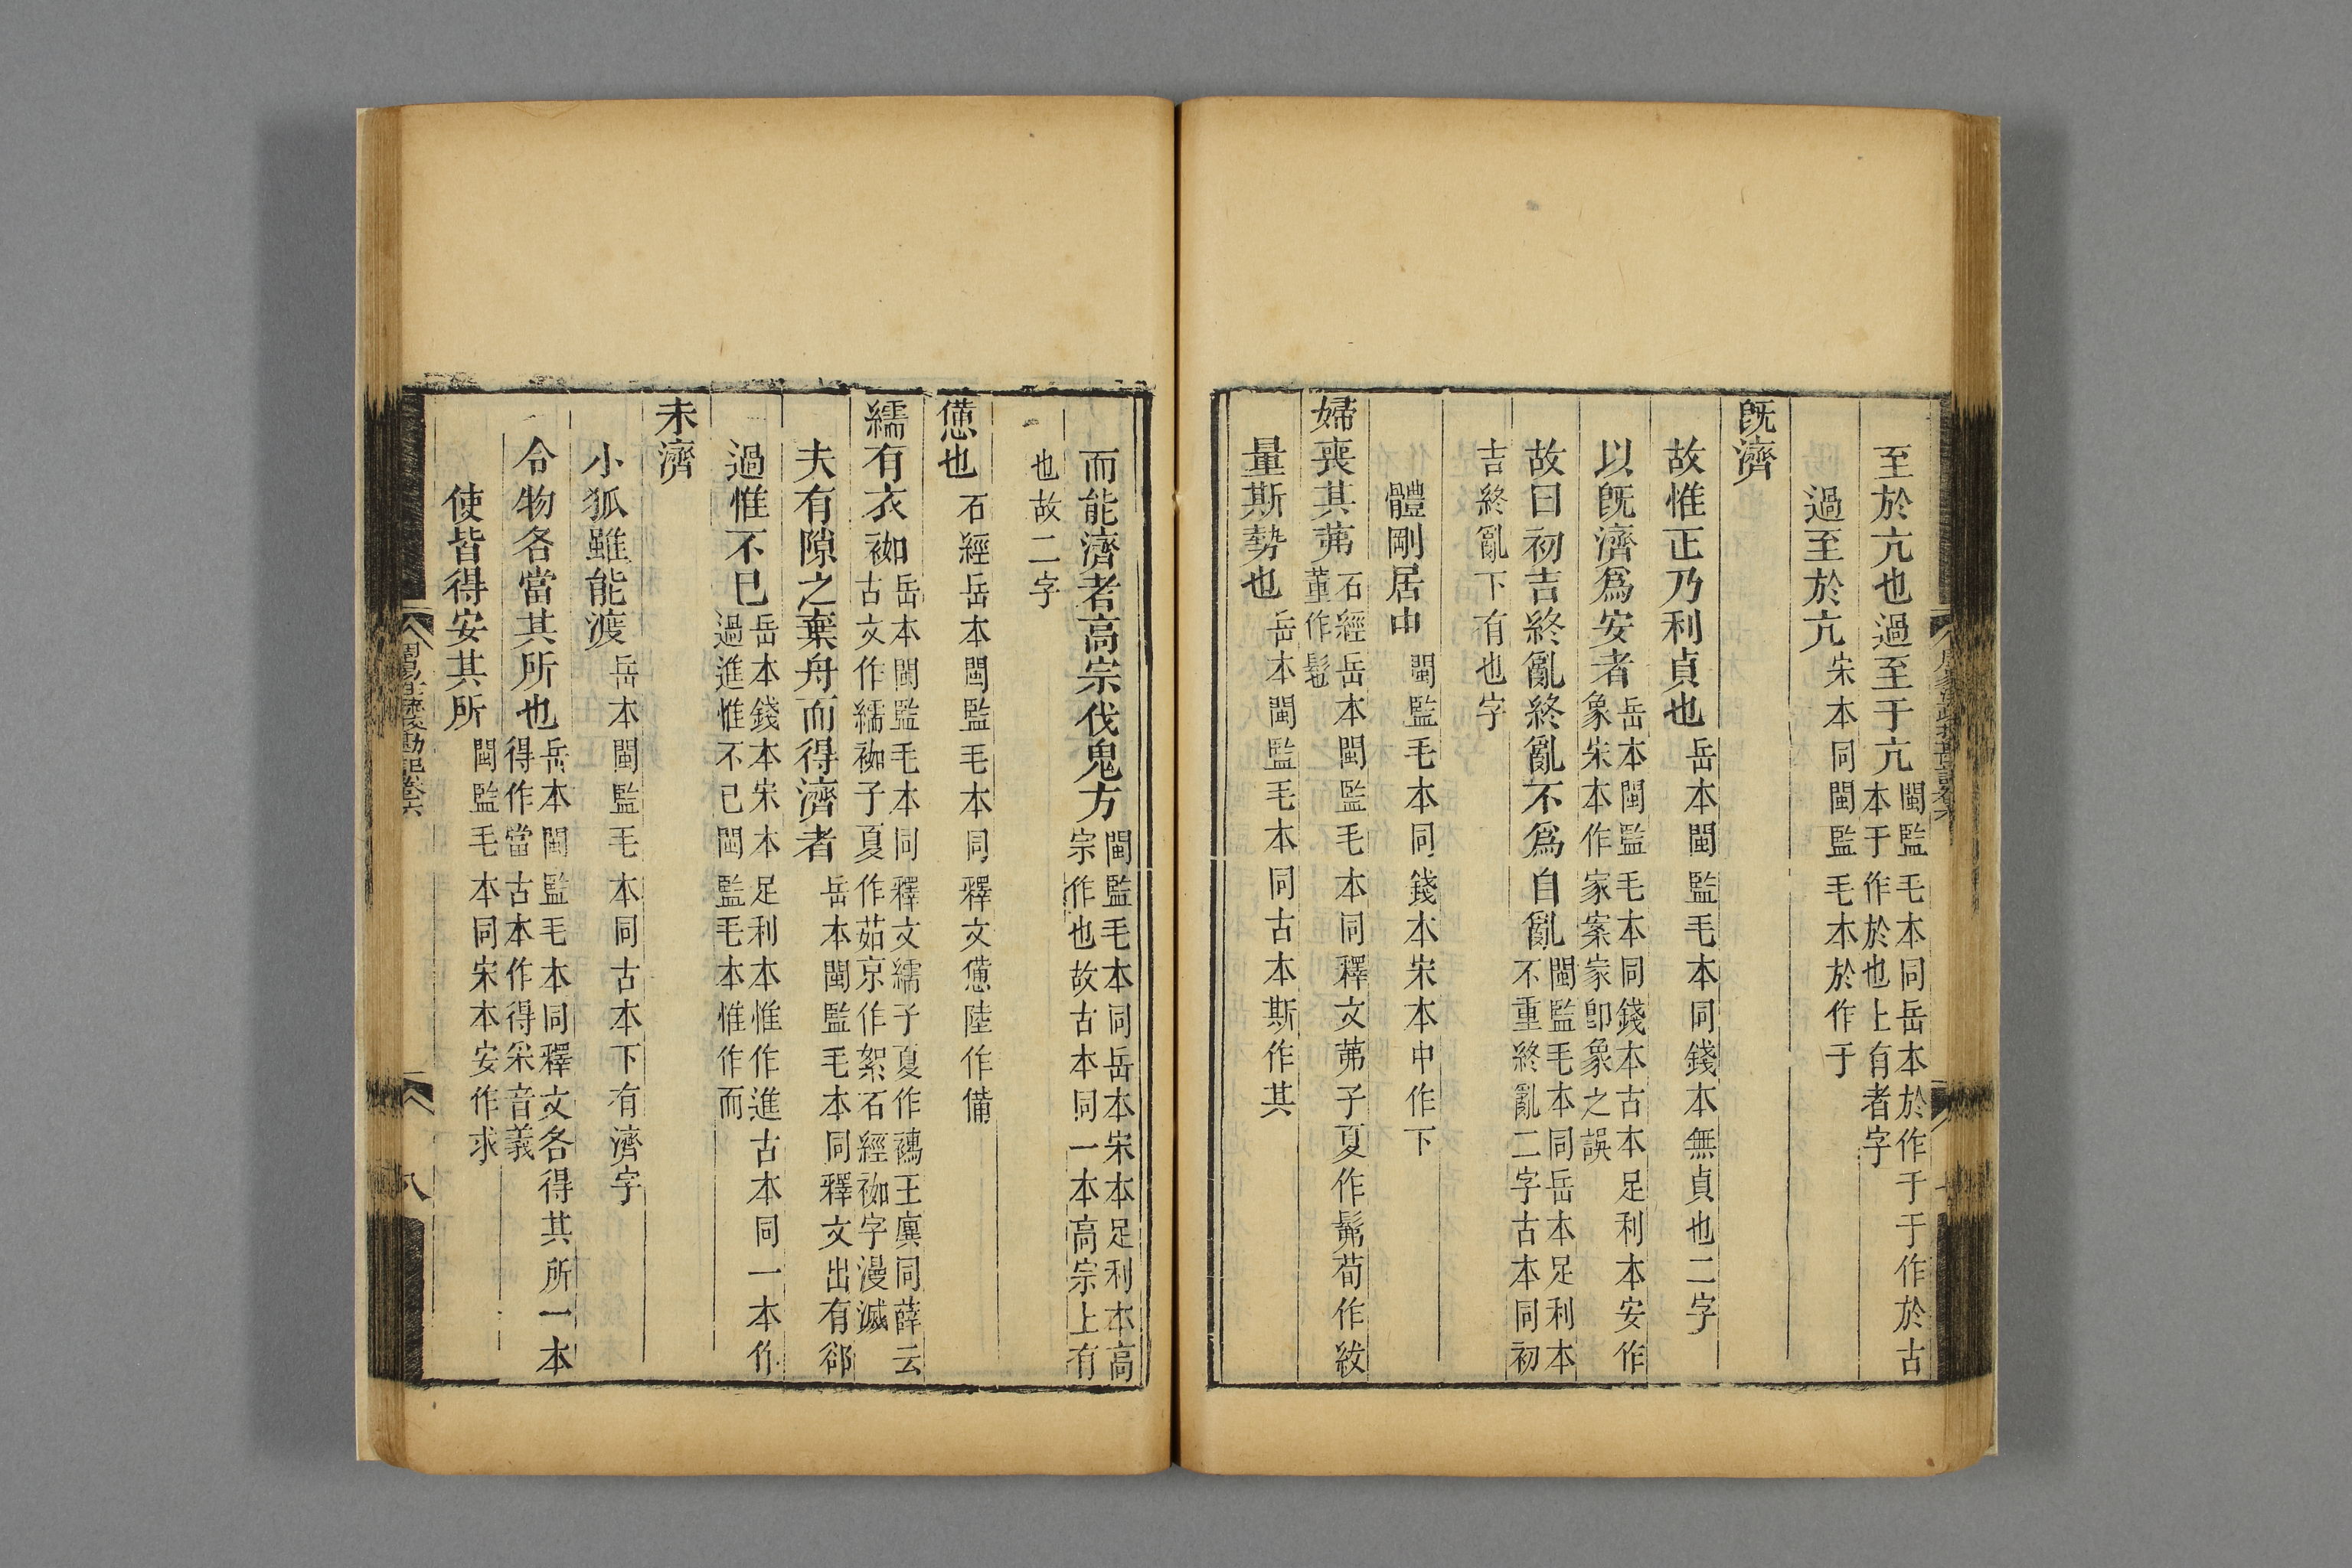 至於亢也過至于亢閩監毛本同岳本於作于于作於古本于作於也上有者字
過至於亢宋本同閩監毛本於作于
旣濟
故惟正乃利貞也岳本閩監毛本同錢本無貞也二字
以旣濟爲安者岳本閩監毛本同錢本古本足利本安作象宋本作家案家卽象之誤
故曰初吉終亂終亂不爲自亂閩監毛本同岳本足利本不重終亂二字古本同初
吉終亂下有也字
體剛居中閩監毛本同錢本宋本中作下
婦喪其茀石經岳本閩監毛本同釋文茀子夏作髴荀作紱董作髢
量斯勢也岳本閩監毛本同古本斯作其
而能濟者高宗伐鬼方閩監毛本同岳本宋本足利本高宗作也故古本同一本高宗上有
也故二字
憊也石經岳本閩監毛本同釋文憊陸作備
繻有衣袽岳本閩監毛本同釋文繻子夏作襦王廙同薛云古文作繻袽子夏作茹京作絮石經袽字漫滅
夫有隙之棄舟而得濟者岳本閩監毛本同釋文出有郤
過惟不已岳本錢本宋本足利本惟作進古本同一本作過進惟不已閩監毛本惟作而
未濟
小狐雖能渡岳本閩監毛本同古本下有濟字
令物各當其所也岳本閩監毛本同釋文各得其所一本得作當古本作得采音義
使皆得安其所閩監毛本同宋本安作求
周易注疏校勘記卷六
八